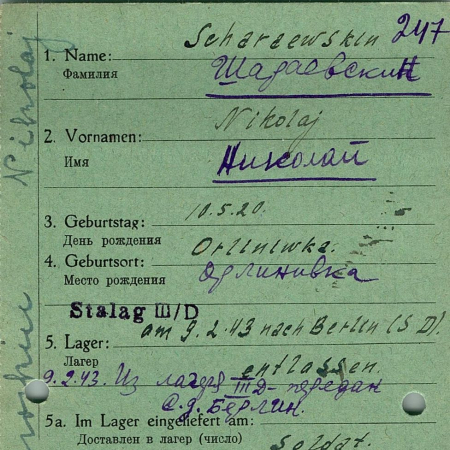 Scharaewskin 247
1. Name:
Фамилия Шараевский
Nikolaj
2. Vornamen:
Имя Николай
3. Geburtstag: 10.5.20.
День рождения
4. Geburtsort: Orliniwka.
Место рождения Орлиновка
Stalag III/D
5. Lager: am 9.2.43 nach Berlin (S D).
Лагерь entlassen.
9.2.43. Из лагеря III D передан
С.Д. Берлин.
5a. Im Lager eingeliefert am:
Доставлен в лагерь (число) Soldat.
Nikolaj